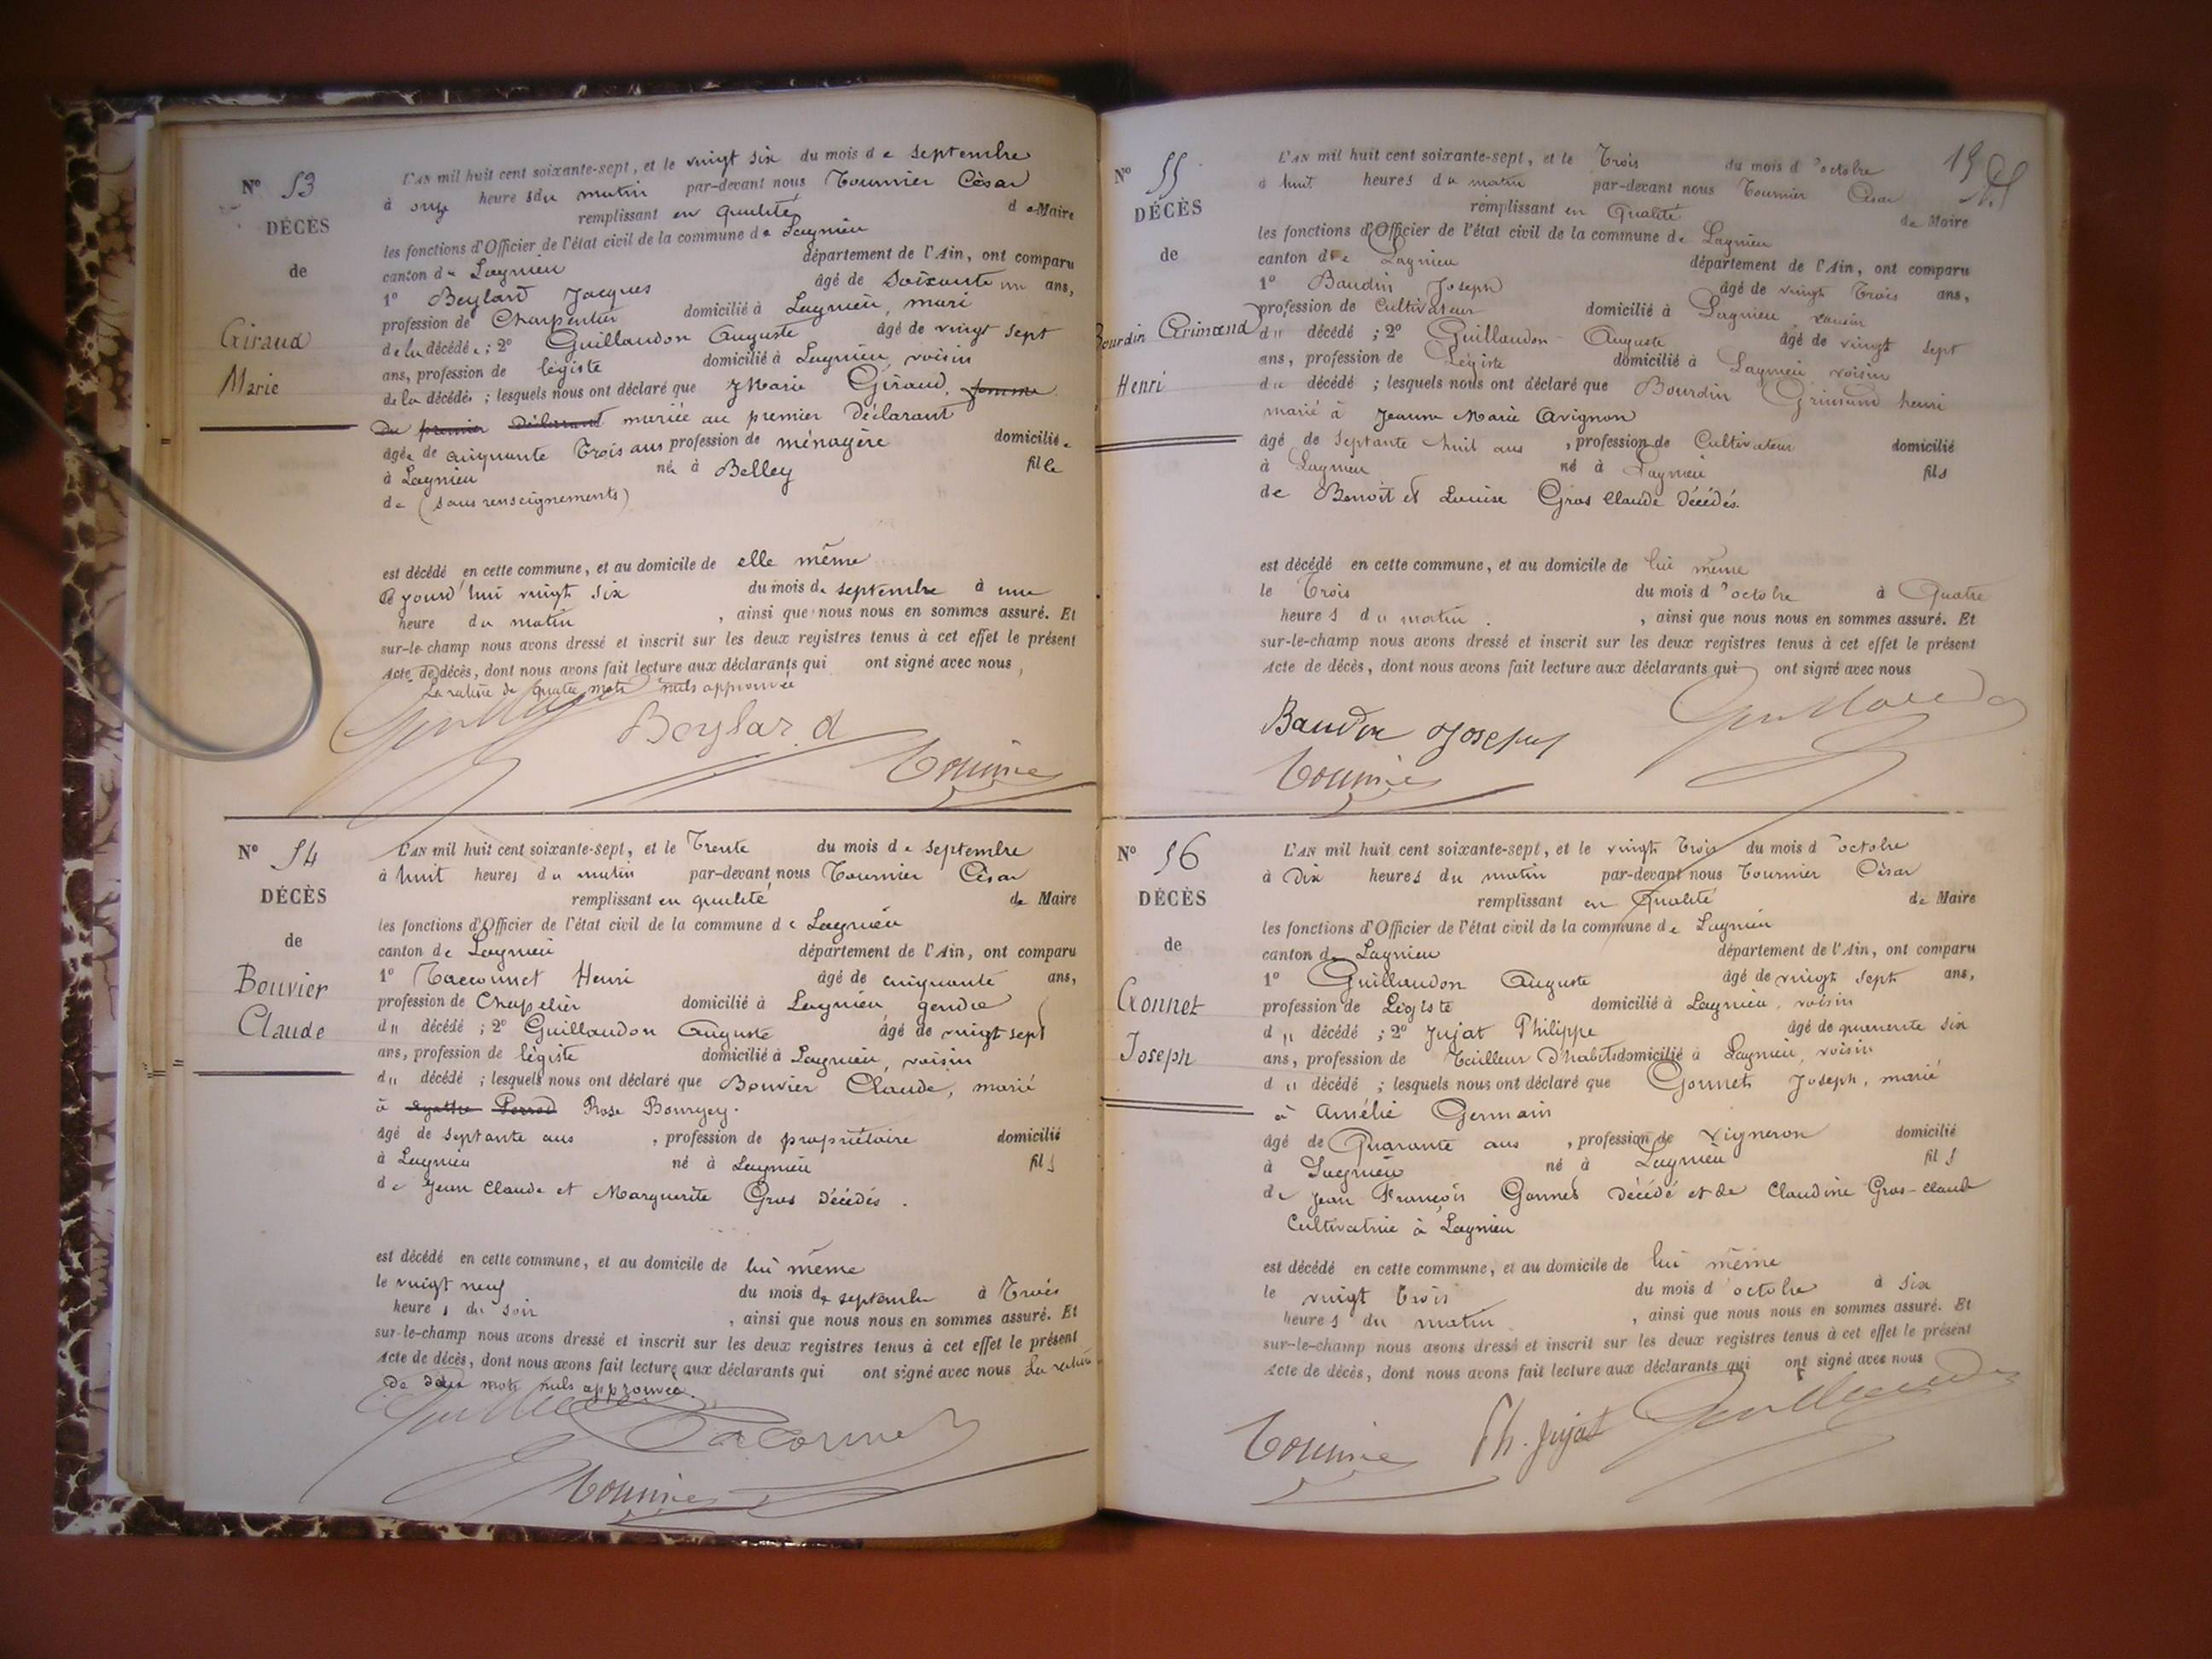 N° 53
DÉCÈS
de
Giraud
Marie
L'AN mil huit cent soixante-sept, et le vingt six du mois de septembre
à onze heures du matin par-devant nous Tournier Cèsar
remplissant en qualité de Maire
les fonctions d'Officier de l'état civil de la commune de Lagnieu
canton de Lagnieu département de l'Ain, ont comparu
1° Beylard Jacques âgé de Soixante un ans,
profession de Charpentier domicilié à Lagnieu, mari
de la décédée ; 2° Guillaudon Auguste âgé de vingt sept
ans, profession de légiste domicilié à Lagnieu, voisin
de la décédée ; lesquels nous ont déclaré que Marie Giraud, femme
Du premier Déclarant mariée au premier Déclarant
âgée de cinquante Trois ans profession de ménagère domiciliée
à Lagnieu née à Belley fille
de (sans renseignements)
est décédé en cette commune, et au domicile de elle même
ce jourd'hui vingt six du mois de septembre à une
heure du matin, ainsi que nous nous en sommes assuré. Et
sur-le-champ nous avons dressé et inscrit sur les deux registres tenus à cet effet le présent
Acte de décès, dont nous avons fait lecture aux déclarants qui ont signé avec nous,
La rature de quatre mots nuls approuvée
Beylard
Tournier
N° 54
DÉCÈS
de
Bouvier
Claude
L'AN mil huit cent soixante-sept, et le Trente du mois de septembre
à huit heures du matin par-devant nous Tournier Cèsar
remplissant en qualité de Maire
les fonctions d'Officier de l'état civil de la commune de Lagnieu
canton de Lagnieu département de l'Ain, ont comparu
1° Tacconnet Henri âgé de cinquante ans,
profession de Chapelier domicilié à Lagnieu, gendre
du décédé ; 2° Guillaudon Auguste âgé de vingt sept
ans, profession de légiste domicilié à Lagnieu, voisin
du décédé ; lesquels nous ont déclaré que Bouvier Claude, marié
à Rose Bourgey.
âgé de septante ans, profession de propriétaire domicilié
à Lagnieu né à Lagnieu fils
de Jean Claude et Marguerite Gros Décédés.
est décédé en cette commune, et au domicile de lui même
le vingt neuf du mois de septembre à Trois
heures du soir, ainsi que nous nous en sommes assuré. Et
sur-le-champ nous avons dressé et inscrit sur les deux registres tenus à cet effet le présent
Acte de décès, dont nous avons fait lecture aux déclarants qui ont signé avec nous La rature
de deux mots nuls approuvée.
Tournier
N° 55
DÉCÈS
de
Bourdin Grimand
Henri
L'AN mil huit cent soixante-sept, et le Trois du mois d'octobre
à huit heures du matin par-devant nous Tournier Cèsar
remplissant en Qualité de Maire
les fonctions d'Officier de l'état civil de la commune de Lagnieu
canton de Lagnieu département de l'Ain, ont comparu
1° Baudin Joseph âgé de vingt Trois ans,
profession de Cultivateur domicilié à Lagnieu,
du décédé ; 2° Guillaudon Auguste âgé de vingt sept
ans, profession de Légiste domicilié à Lagnieu voisin
du décédé ; lesquels nous ont déclaré que Bourdin Grimand henri
marié à Jeanne Marie Avignon
âgé de Septante huit ans, profession de Cultivateur domicilié
à Lagnieu né à Lagnieu fils
de Benoît et Louise Gros Claude Décédés.
est décédé en cette commune, et au domicile de lui même
le Trois du mois d'octobre à Quatre
heures du matin, ainsi que nous nous en sommes assuré. Et
sur-le-champ nous avons dressé et inscrit sur les deux registres tenus à cet effet le présent
Acte de décès, dont nous avons fait lecture aux déclarants qui ont signé avec nous
Baudin Joseph
Tournier
N° 56
DÉCÈS
de
Gonnet
Joseph
L'AN mil huit cent soixante-sept, et le vingt Trois du mois d'octobre
à Dix heures du matin par-devant nous Tournier Cèsar
remplissant en Qualité de Maire
les fonctions d'Officier de l'état civil de la commune de Lagnieu
canton de Lagnieu département de l'Ain, ont comparu
1° Guillaudon Auguste âgé de vingt sept ans,
profession de Légiste domicilié à Lagnieu, voisin
du décédé ; 2° Jujat Philippe âgé de quarante six
ans, profession de Tailleur D'habits domicilié à Lagnieu, voisin
du décédé ; lesquels nous ont déclaré que Gonnet Joseph, marié
à Amélie Germain
âgé de Quarante ans, profession de Vigneron domicilié
à Lagnieu né à Lagnieu fils
de Jean François Gonnet Décédé et de Claudine Gros-claude
Cultivatrice à Lagnieu
est décédé en cette commune, et au domicile de lui même
le vingt Trois du mois d'octobre à six
heures du matin, ainsi que nous nous en sommes assuré. Et
sur-le-champ nous avons dressé et inscrit sur les deux registres tenus à cet effet le présent
Acte de décès, dont nous avons fait lecture aux déclarants qui ont signé avec nous
Tournier Ph. Jujat